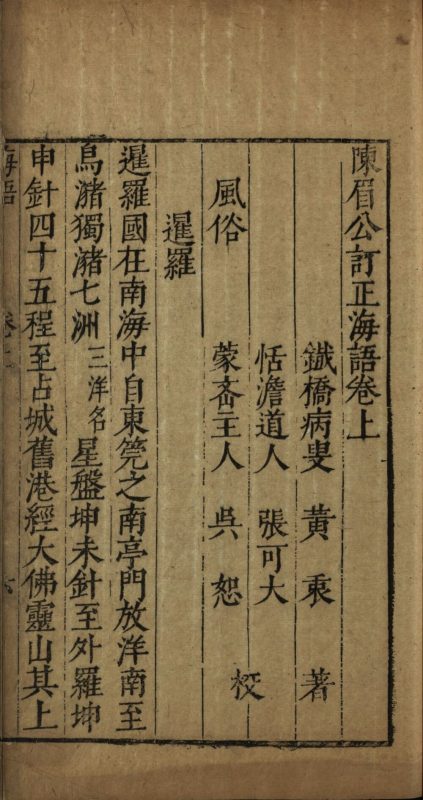 陳眉公訂正海語卷上
鐵橋病叟　黃衷　著
恬澹道人　張可大
蒙齋主人　吳恕　校
風俗
暹羅
暹羅國在南海中自東筦之南亭門放洋南至
烏瀦獨瀦七洲三洋名星盤坤未針至外羅坤
申針四十五程至占城舊港經大佛靈山其上
海語　卷上